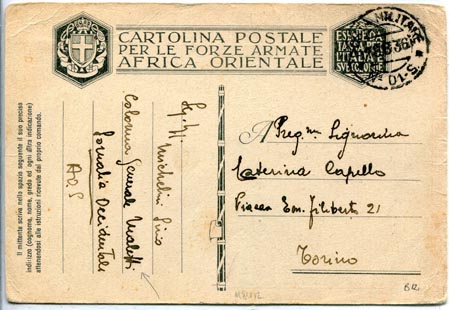 CARTOLINA POSTALE
PER LE FORZE ARMATE
AFRICA ORIENTALE
ESENTE DA
TASSA PER
L'ITALIA E
SUE COLONIE
MILITARE
36
Il mittente scriva nello spazio seguente il suo preciso
indirizzo (cognome, nome, grado ed ogni altra indicazione)
attenendosi alle istruzioni ricevute dal proprio comando.
Michelini Lino
Colonna Generale Maletti
Somalia Occidentale
A.O.S
A Preg.ma Signorina
Caterina Capello
Piazza Em. Filiberto 21
Torino